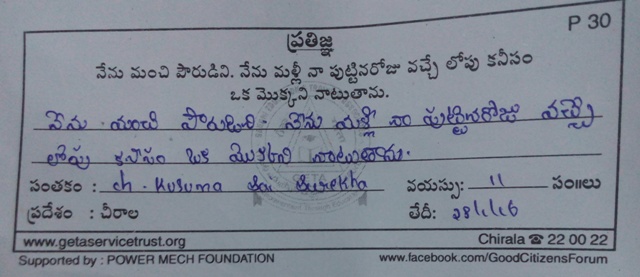 P 30
ప్రతిజ్ఞ
నేను మంచి పౌరుడిని. నేను మళ్లీ నా పుట్టినరోజు వచ్చే లోపు కనీసం
ఒక మొక్కని నాటుతాను.
నేను మంచి పౌరుడిని. నేను మళ్లీ నా పుట్టినరోజు వచ్చే
లోపు కనీసం ఒక మొక్కని నాటుతాను.
సంతకం : ch. Kusuma Sai Surekha వయస్సు: 11 సం॥లు
ప్రదేశం : చీరాల తేదీ: 28/1/16
www.getaservicetrust.org Chirala ☎ 22 00 22
Supported by : POWER MECH FOUNDATION www.facebook.com/GoodCitizensForum